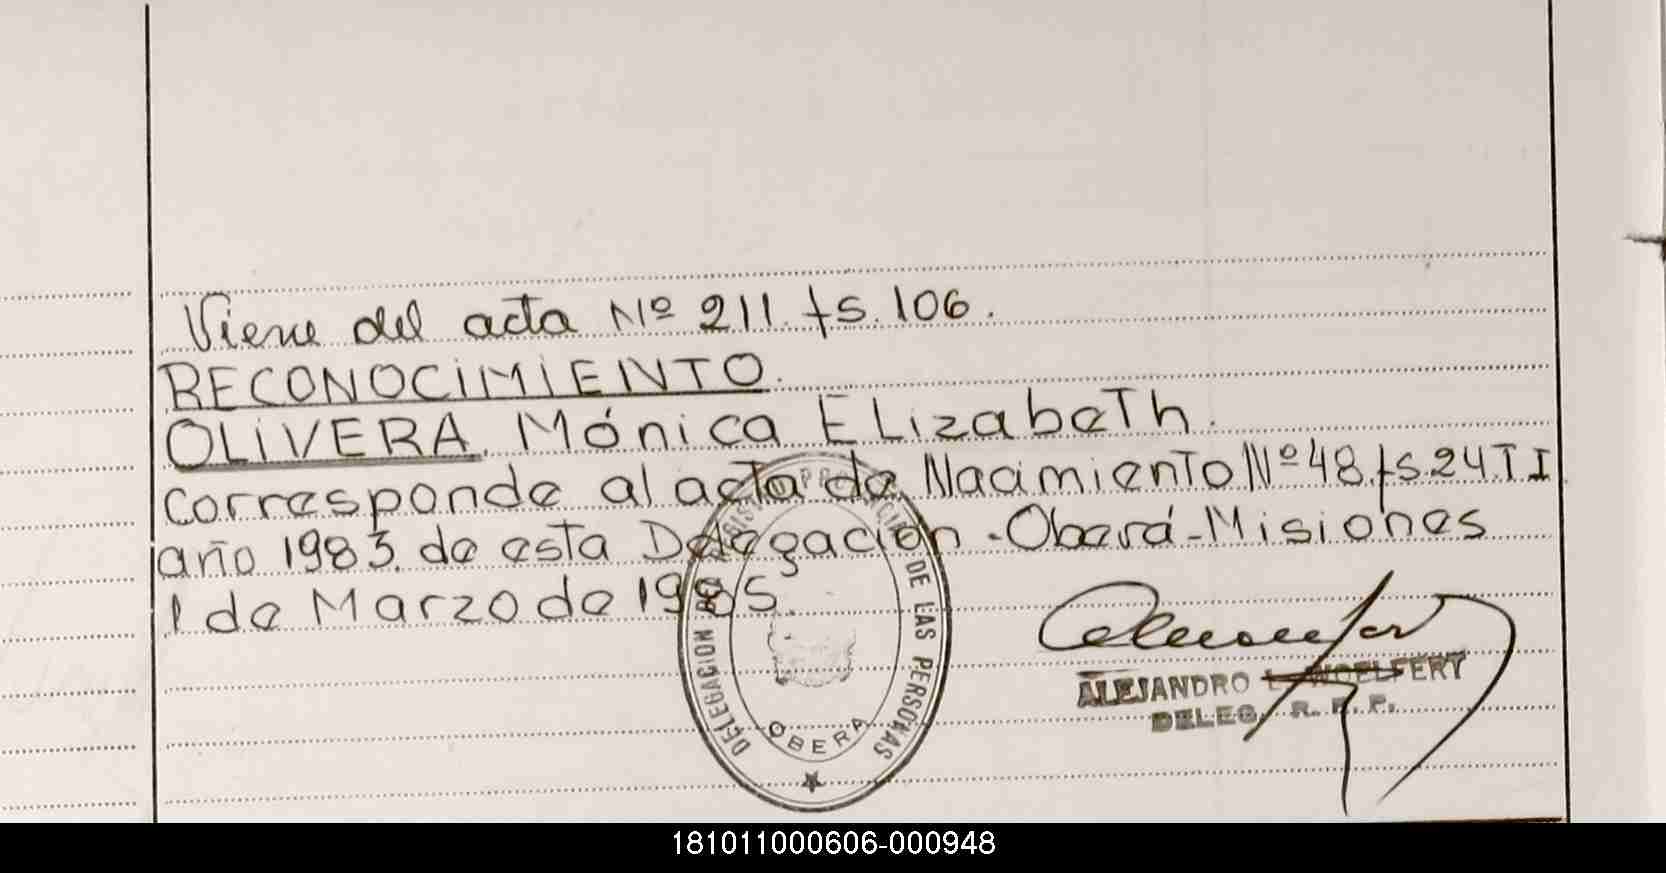 Viene del acta Nº 211. fs. 106.
RECONOCIMIENTO.
OLIVERA, Mónica ELizabeTh.
corresponde al acta de NacimienTo Nº 48. fs. 24. T I
año 1983. de esta Delegación - Oberá - Misiones
1 de Marzo de 1985.
DELEGACION REGISTRO PROVINCIAL DE LAS PERSONAS
OBERA
ALEJANDRO L. WOELFERT
DELEG. R. P. P.
181011000606-000948